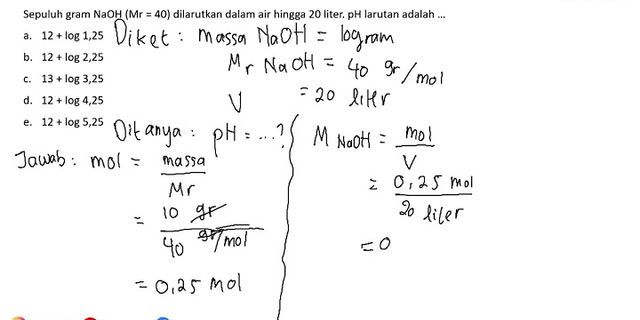 Sepuluh gram NaOH (Mr = 40) dilarutkan dalam air hingga 20 liter. pH larutan adalah ...
a. 12 + log 1,25
b. 12 + log 2,25
c. 13 + log 3,25
d. 12 + log 4,25
e. 12 + log 5,25
Diket : massa NaOH = 10gram
Mr NaOH = 40 gr/mol
V = 20 liter
Ditanya : pH = ...?
Jawab : mol = massa
Mr
= 10 gr
40 gr/mol
= 0,25 mol
M NaOH = mol
V
= 0,25 mol
20 liter
= 0